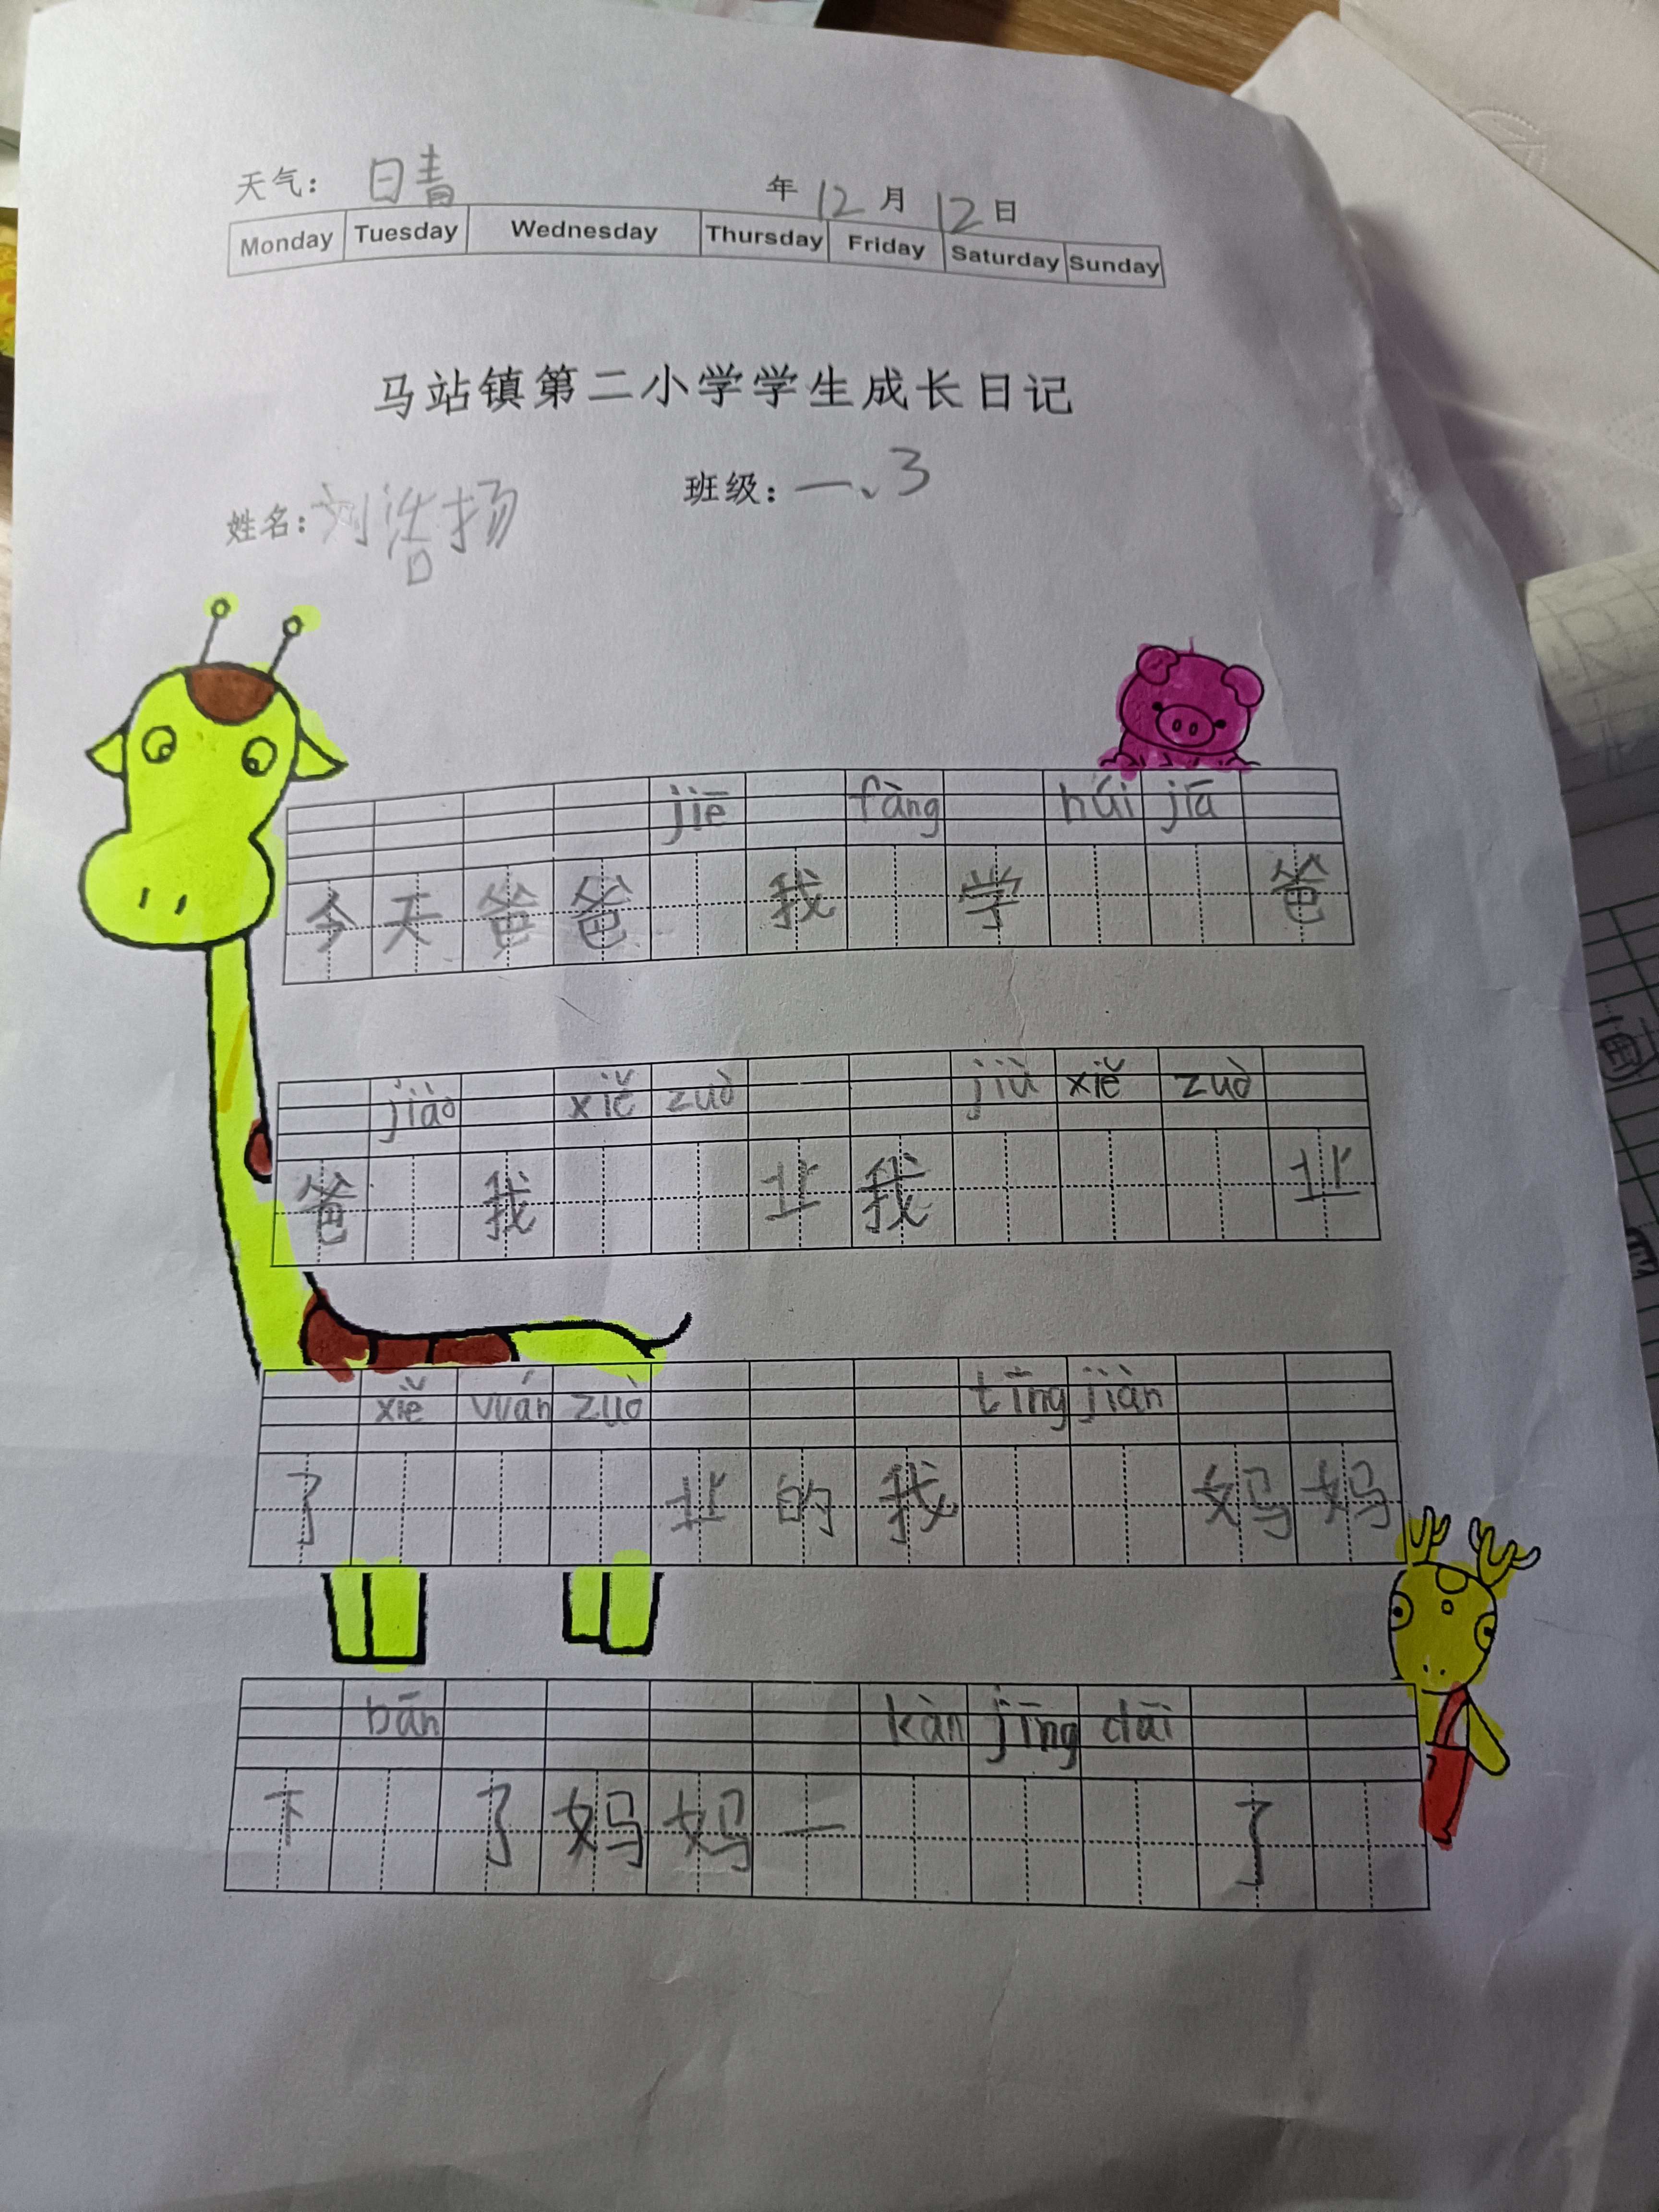 天气： 晴 年 12 月 12 日
Monday Tuesday Wednesday Thursday Friday Saturday Sunday
马站镇第二小学学生成长日记
姓名：刘浩扬 班级：一、3
jiē fàng húi jiā
今天爸爸 我 学 爸
jiào xiě zuò jiù xiě zuò
爸 我 业我 业
xiě wán zuò tīng jiàn
了 业的我 妈妈
bān kàn jīng dāi
下 了妈妈一 了